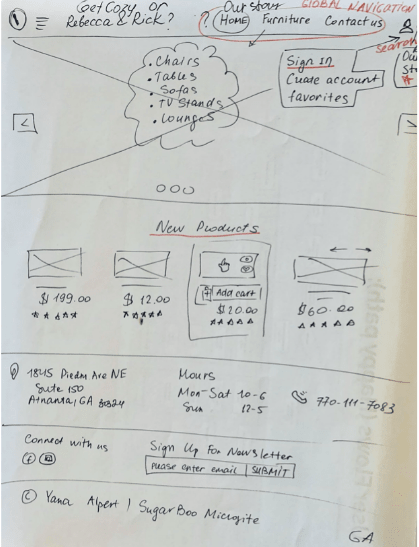 Get Cozy or
Rebecca & Rick?
? Our story
GLOBAL NAVIGATION
HOME Furniture Contact us
search
• Chairs
• Tables
• Sofas
• TV Stands
• Lounges
Sign In
Cuate account
favorites
<
>
New Products
$199.00
$12.00
+ Add cart
$20.00
$60.00
1845 Piedm Ave NE
Suite 150
Atnanta, GA
Hours
Mon-Sat 10-6
Sun 12-5
770-111-7083
Connect with us
f
Sign Up For Newsletter
Please enter email | SUBMIT
© Yana Alpert / SugarBoo Microsite
GA